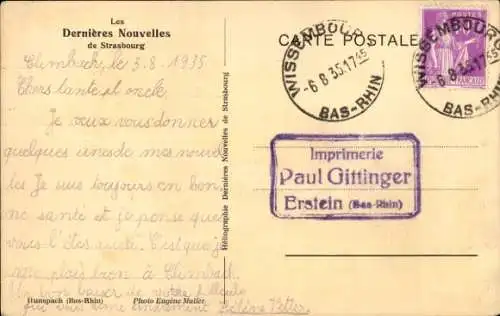 Les
Dernières Nouvelles
de Strasbourg
Climbach, le 3.8.1935
Chers tante et oncle.
Je veux vous donner
quelques unes de mes nouvel
les Je suis toujours en bon
ne santé et je pense que
vous l'êtes aussi. C'est que je
me plais bien à Climbach.
Un bon baiser de votre
qui vous aime tendrement Hélène
Hunspach (Bas-Rhin) Photo Eugène Muller.
Héliographie Dernières Nouvelles de Strasbourg
CARTE POSTALE
WISSEMBOURG
-6.8.35.17 45
BAS-RHIN
POSTES
WISSEMBOURG
-6.8.35.17 45
BAS-RHIN
Imprimerie
Paul Gittinger
Erstein (Bas-Rhin)